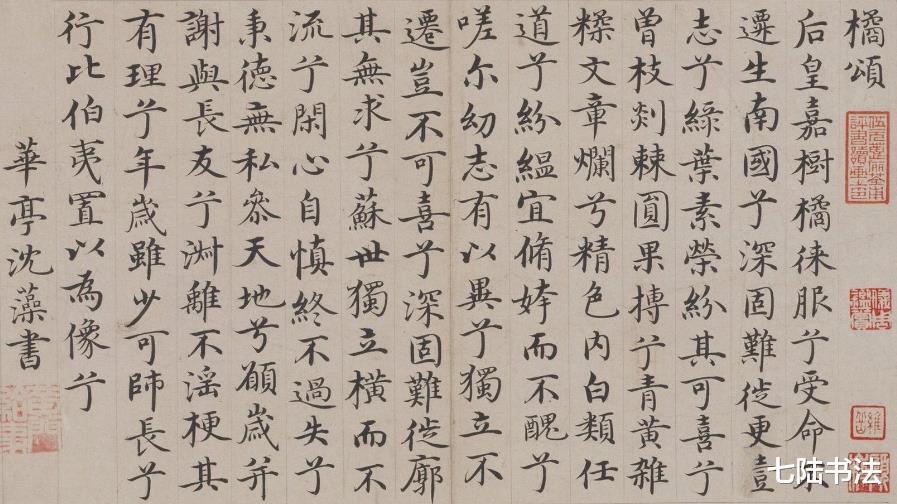 橘頌
后皇嘉樹橘徠服兮受命不
遷生南國兮深固難徙更壹
志兮綠葉素榮紛其可喜兮
曾枝剡棘圓果摶兮青黃雜
糅文章爛兮精色内白類任
道兮紛緼宜脩姱而不醜兮
嗟尔幼志有以異兮獨立不
遷豈不可喜兮深固難徙廓
其無求兮蘇世獨立橫而不
流兮閑心自慎終不過失兮
秉德無私參天地兮願歲并
謝與長友兮淑離不淫梗其
有理兮年歲雖少可師長兮
行比伯夷置以為像兮
華亭沈藻書
七陆书法